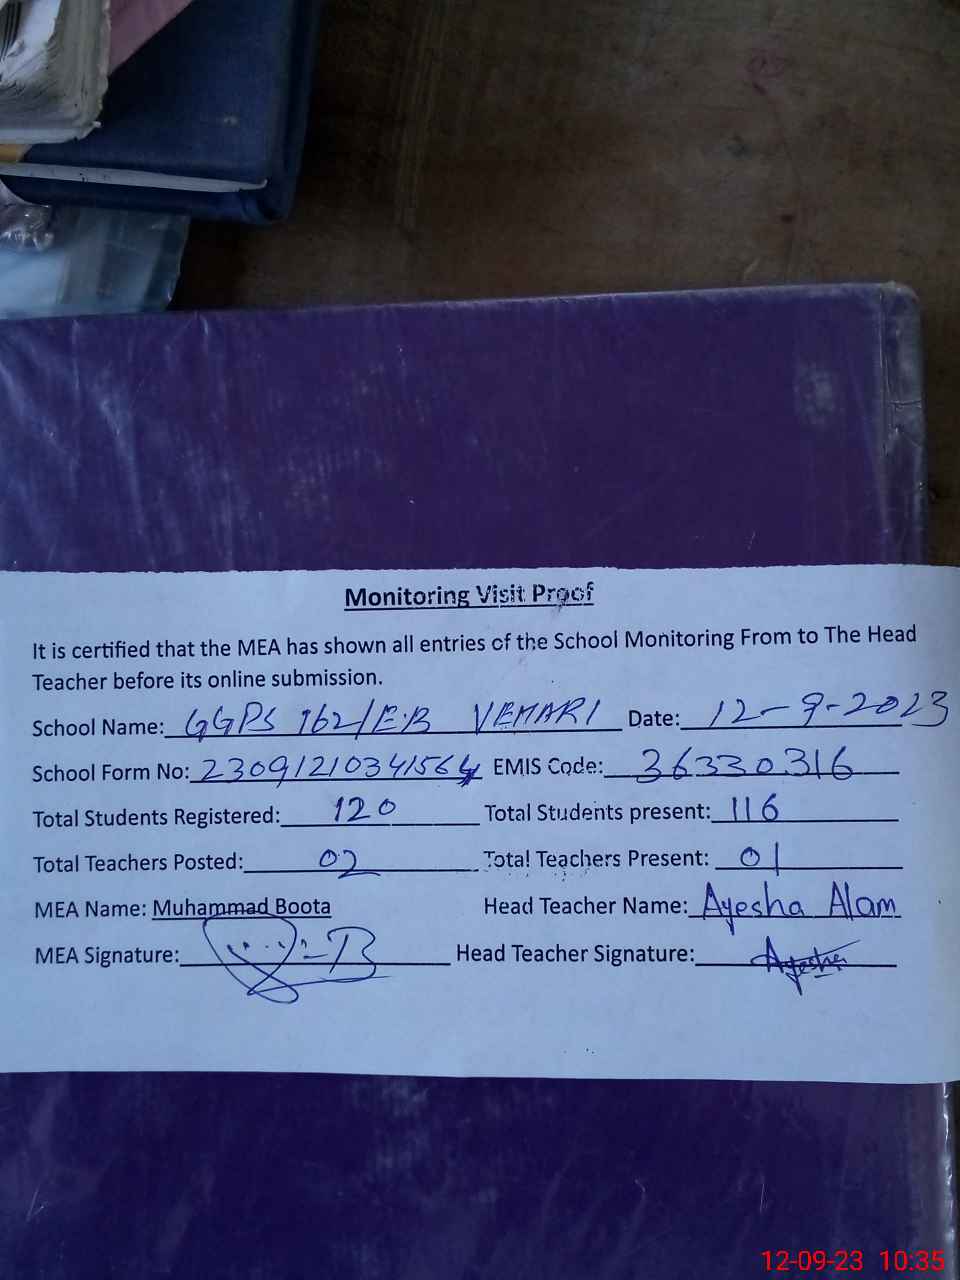 Monitoring Visit Proof
It is certified that the MEA has shown all entries of the School Monitoring From to The Head
Teacher before its online submission.
School Name: GGPS 162/E.B VEHARI Date: 12-9-2023
School Form No: 23091210341564 EMIS Code: 36330316
Total Students Registered: 120 Total Students present: 116
Total Teachers Posted: 02 Total Teachers Present: 01
MEA Name: Muhammad Boota Head Teacher Name: Ayesha Alam
MEA Signature: Head Teacher Signature: Ayesha
12-09-23 10:35